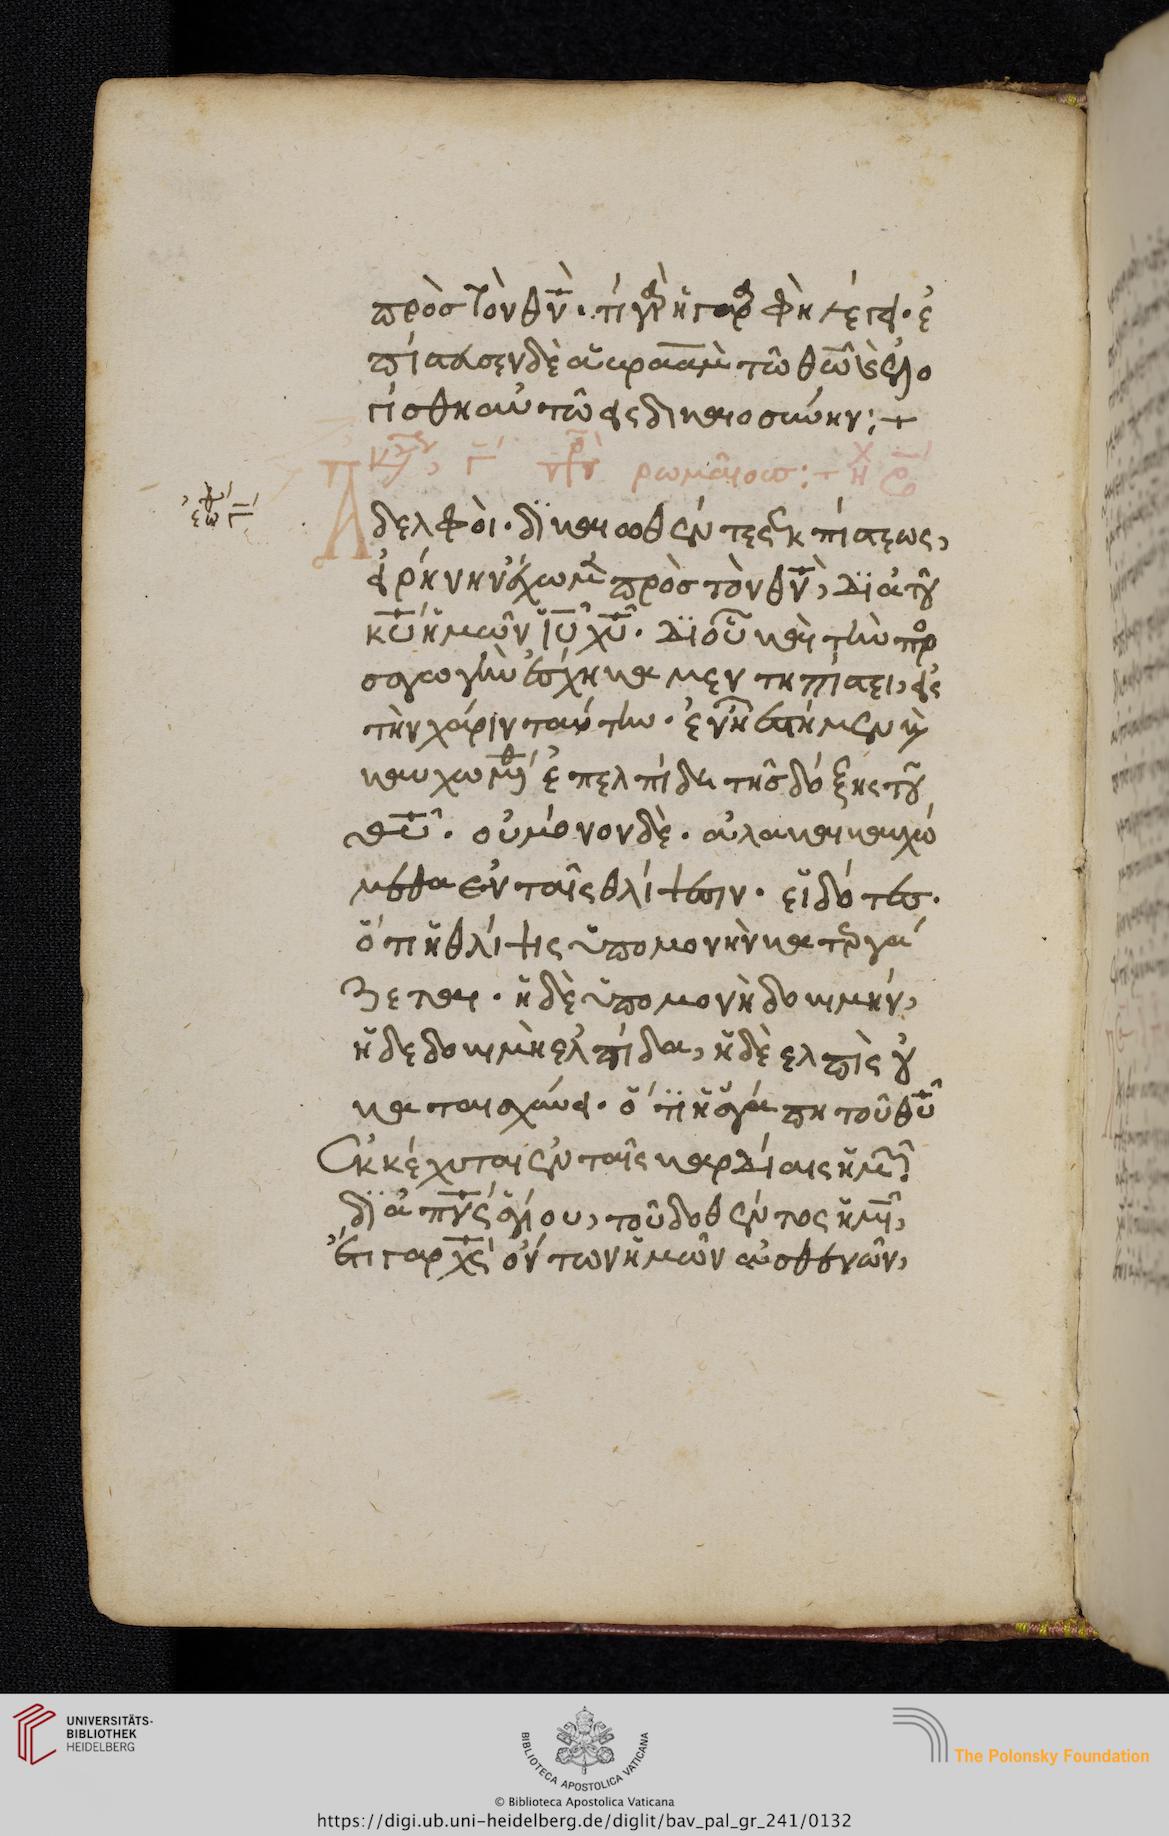 πρὸσ τὸν θν̅· τί γὰρ ἡ γραφὴ λέγει· ἐ
πίστευσεν δὲ ἀβρααμ τῶ θω̅ κ̀ ἐλο
γίσθη αὐτῶ εἰς δικαιοσύνην:+
κυ γ̅ πρ ρωμαίουσ:+
Ἀδελφοὶ· δικαιωθέντες ἐκ πίστεως,
εἰρήνην ἔχωμεν πρὸσ τὸν θν̅, διὰ τοῦ
κυ̅ ἡμῶν ιυ̅ χυ̅· δι οὗ καὶ τὴν προ
σαγωγὴν ἐσχήκαμεν τη πίστει, εἰς
τὴν χάριν ταύτην· ἐν ἧ ἑστήκαμεν κ̀
καυχωμεθ ἐπελπίδι τῆσ δόξης τοῦ
θυ̅· οὐ μόνον δὲ· ἀλα καὶ καυχώ
μεθα ἐν ταῖς θλίψεσιν· εἰδότεσ·
ὅτι ἡ θλίψις ὑπομονὴν κατεργά
ζεται· ἡ δὲ ὑπομονὴ δοκιμήν,
ἡ δε δοκιμὴ ἐλπίδα, ἡ δὲ ελπὶς οὐ
καταισχύνει· ὅτι ἡ ἀγάπη τοῦ θυ̅
ἐκκέχυται ἐν ταῖς καρδίαις ἡμῶν
διὰ πνς̅ ἁγίου, τοῦ δοθέντος ἡμῖν,
ἔτι γαρ χς̅ ὄντων ἡμῶν ἀσθενῶν,
UNIVERSITÄTS-
BIBLIOTHEK
HEIDELBERG
BIBLIOTECA APOSTOLICA VATICANA
© Biblioteca Apostolica Vaticana
The Polonsky Foundation
https://digi.ub.uni-heidelberg.de/diglit/bav_pal_gr_241/0132